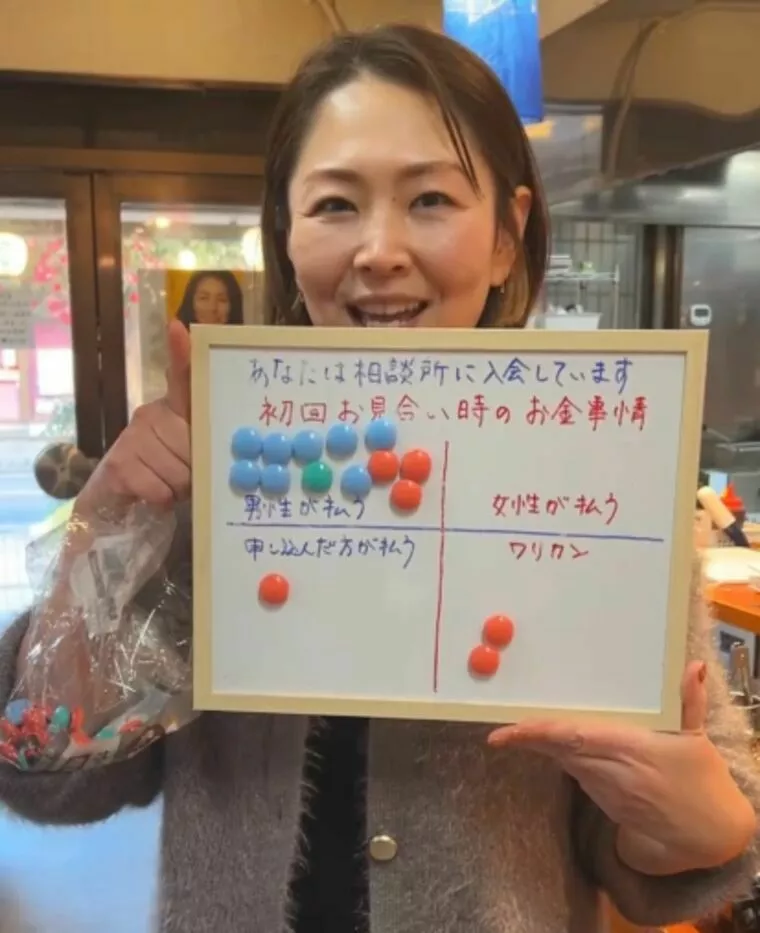 あなたは相談所に入会しています
初回お見合い時のお金事情
男性が払う
女性が払う
申し込んだ方が払う
ワリカン